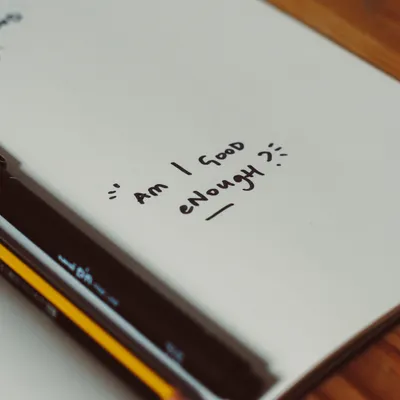 AM I GOOD
eNOUgH?